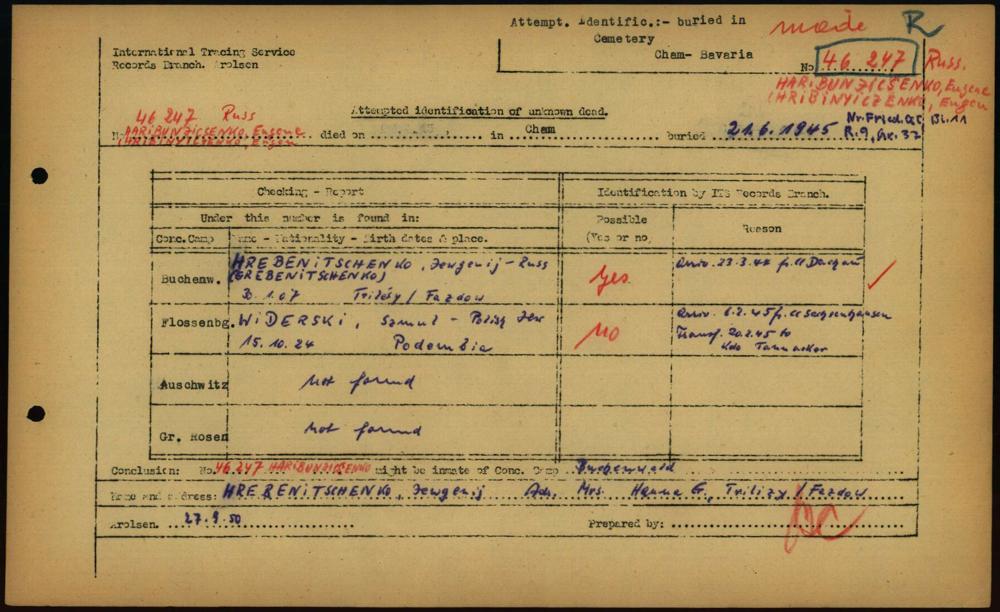 Attempt. Identific.:- buried in
Cemetery
Cham- Bavaria
made R
International Tracing Service
Records Branch. Arolsen
No. 46 247 Russ.
HARIBUNZICSENKO, Eugene
CHRIBINYICZENKO, Eugen
Attempted identification of unknown dead.
46 247 Russ
No. HARIBUNZICSENKO, Eugene died on in Cham buried 21.6.1945
CHRIBINYICZENKO, Eugen
Bl. 11
R.9, Gr. 37
Checking - Report
Identification by ITS Records Branch.
Under this number is found in:
Possible
(Yes or no)
Reason
Conc.Camp
Name - Nationality - Birth dates & place.
Buchenw.
HREBENITSCHENKO, Jewgenij - Russ
(GREBENITSCHENKO)
3.1.07 Trilésy / Fazdow
Yes
Arriv. 23.3.44 fr. Cc Dachau
Flossenbg.
WIDERSKI, Szmul - Polish Jew
15.10.24 Podembia
No
Arriv. 6.2.45 fr. Cc Sachsenhausen
Transf. 20.2.45 to
Kdo
Auschwitz
not found
Gr. Rosen
not found
Conclusion: No. 46 247 HARIBUNZICSENKO might be inmate of Conc. Camp Buchenwald
Name and address: HREBENITSCHENKO, Jewgenij Adr. Mrs. Hanna G., Trilizy / Fazdow
Arolsen. 27.9.50
Prepared by: